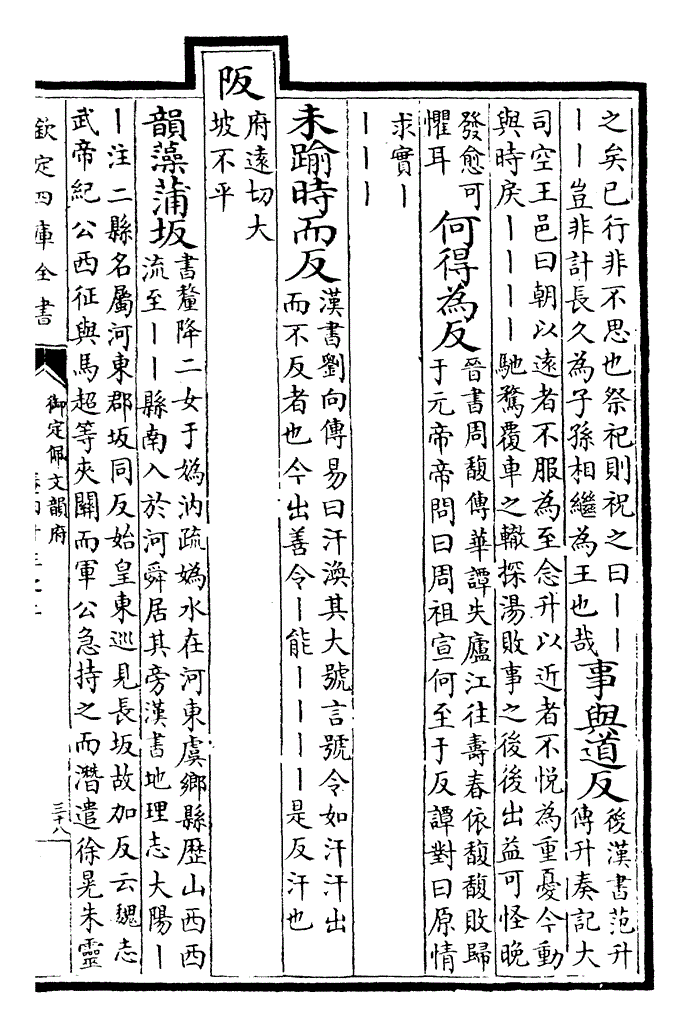 之矣已行非不思也祭祀則祝之曰丨丨
丨丨豈非計長久為子孫相繼為王也哉
事與道反
後漢書范升
傳升奏記大
司空王邑曰朝以遠者不服為至念升以近者不悅為重憂今動
與時戾丨丨丨丨馳騖覆車之轍探湯敗事之後後出益可怪晚
發愈可
懼耳
何得為反
晉書周馥傳華譚失廬江往壽春依馥馥敗歸
于元帝帝問曰周祖宣何至于反譚對曰原情
求實丨
丨丨丨
未踰時而反
漢書劉向傳易曰汗渙其大號言號令如汗汗出
而不反者也今出善令丨能丨丨丨丨是反汗也
阪
府遠切大
坡不平
韻藻蒲坂
書釐降二女于媯汭疏媯水在河東虞鄉縣歴山西西
流至丨丨縣南入於河舜居其旁漢書地理志大陽丨
丨注二縣名屬河東郡坂同反始皇東巡見長坂故加反云魏志
武帝紀公西征與馬超等夾關而軍公急持之而潛遣徐晃朱靈
欽定四庫全書
御定佩文韻府
三十八